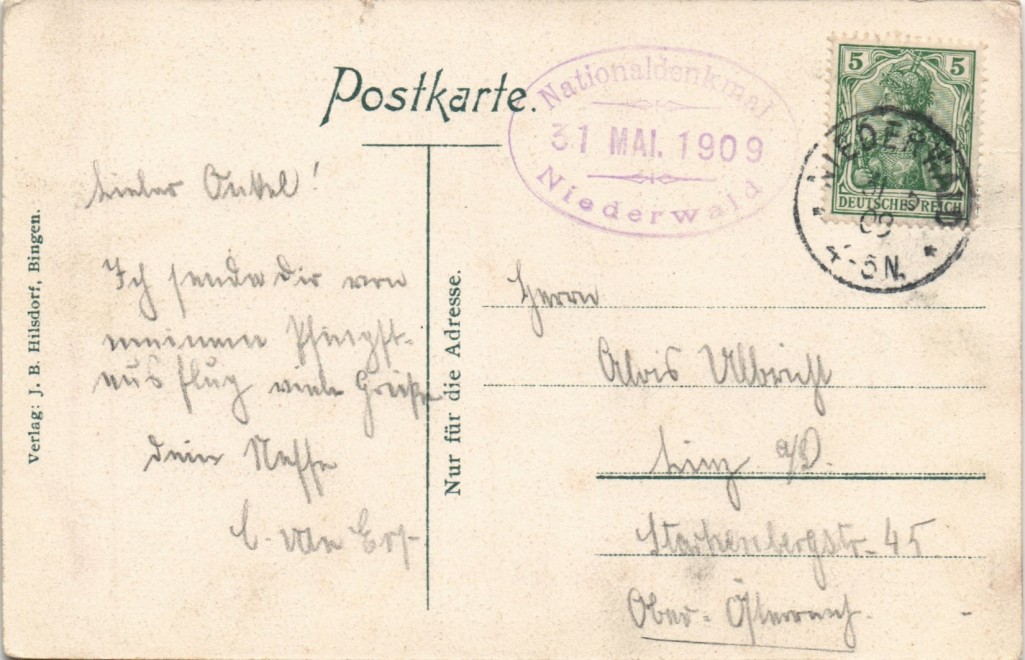 Postkarte.
Nationaldenkmal
31 MAI. 1909
Niederwald
5 5
DEUTSCHES REICH
NIEDERWALD
09
4-5N.
Lieber Onkel!
Ich sende Dir von
meinem Pfingst-
ausflug viele Grüße
dein Neffe
Verlag: J. B. Hilsdorf, Bingen.
Nur für die Adresse.
Herrn
Alois Ulbricht
Linz a/D.
Starhembergstr. 45
Ober-Österreich.